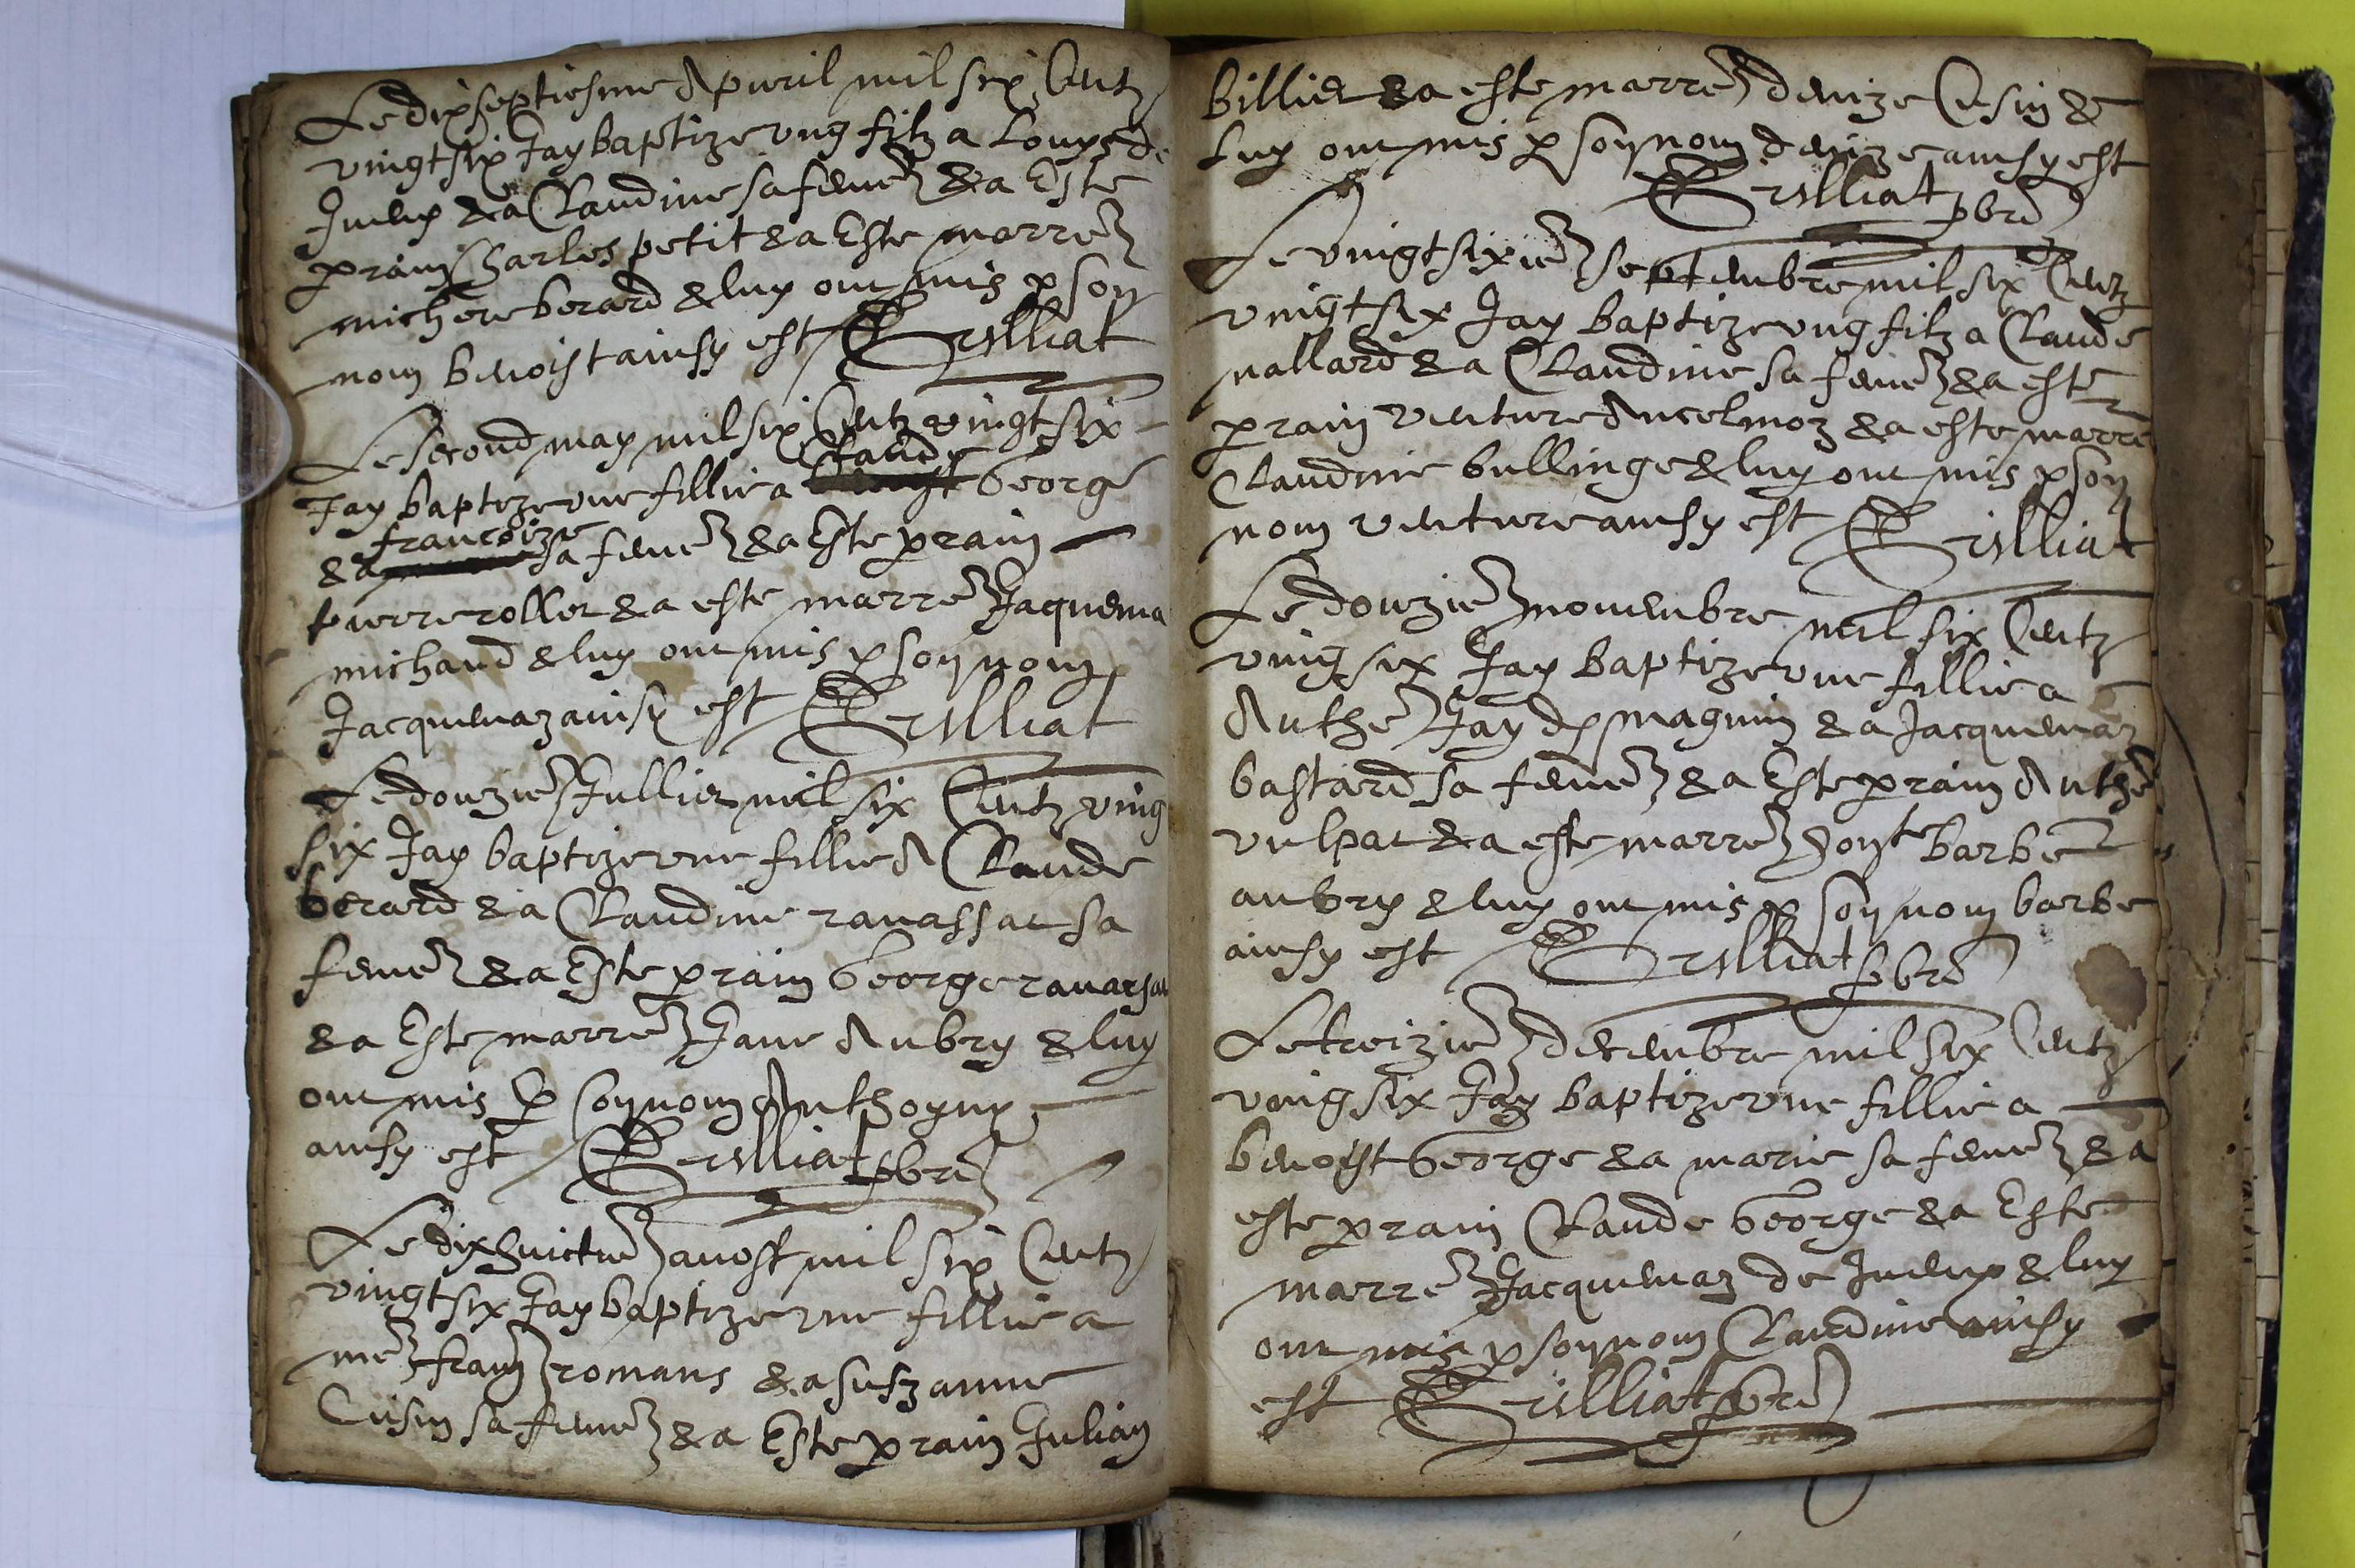 Le dixseptiesme Apuril mil six Centz
vingt six Jay baptize ung filz a Louys de
Jueux & a Claudine sa feme & a Este
parain Charles petit & a Este marre
michere berard & luy ont mis p son
nom benoist ainsy est Grilliat
Le second may mil six Centz vingt six
Claude
Jay baptize une fillie a George
francoize
& a sa feme & a Este parain
pierre rollet & a este marre Jaquema
michaud & luy ont mis p son nom
Jacquemaz ainsy est Grilliat
Le douzie Jullier mil six Centz ving
six Jay baptize une fillie A Claude
berard & a Claudine rauassat sa
feme & a Este parain George rauassat
& a Este marre Jane Aubry & luy
ont mis p son nom Anthoyny
ainsy est Grilliat pbre
Le dixhuictie auost mil six Centz
vingt six Jay baptize une fillie a
me franc romans & a suszanne
Cusin sa feme & a Este parain Julian
billiet & a este marre denize Cusin &
luy ont mis p son nom denize ainsy est
Grilliat pbre
Le vingt sixie septembre mil six Centz
vingt six Jay baptize ung filz a Claude
nallard & a Claudine sa feme & a este
parain venture Ancelmoz & a este marre
Claudine bullinge & luy ont mis p son
nom venture ainsy est Grilliat
Le douzie nouembre mil six Centz
ving six Jay baptize une fillie a
Anthe Jay dp magnin & a Jacquemaz
bastard sa feme & a Este parain Anthe
vulpat & a este marre hon^te barbe
aubry & luy ont mis p son nom barbe
ainsy est Grilliat pbre
Le treizie decembre mil six Centz
ving six Jay baptize une fillie a
benoist George & a marie sa feme & a
este parain Claude George & a Este
marre Jacquemaz de Jueux & luy
ont mis p son nom Claudine ainsy
est Grilliat pbre